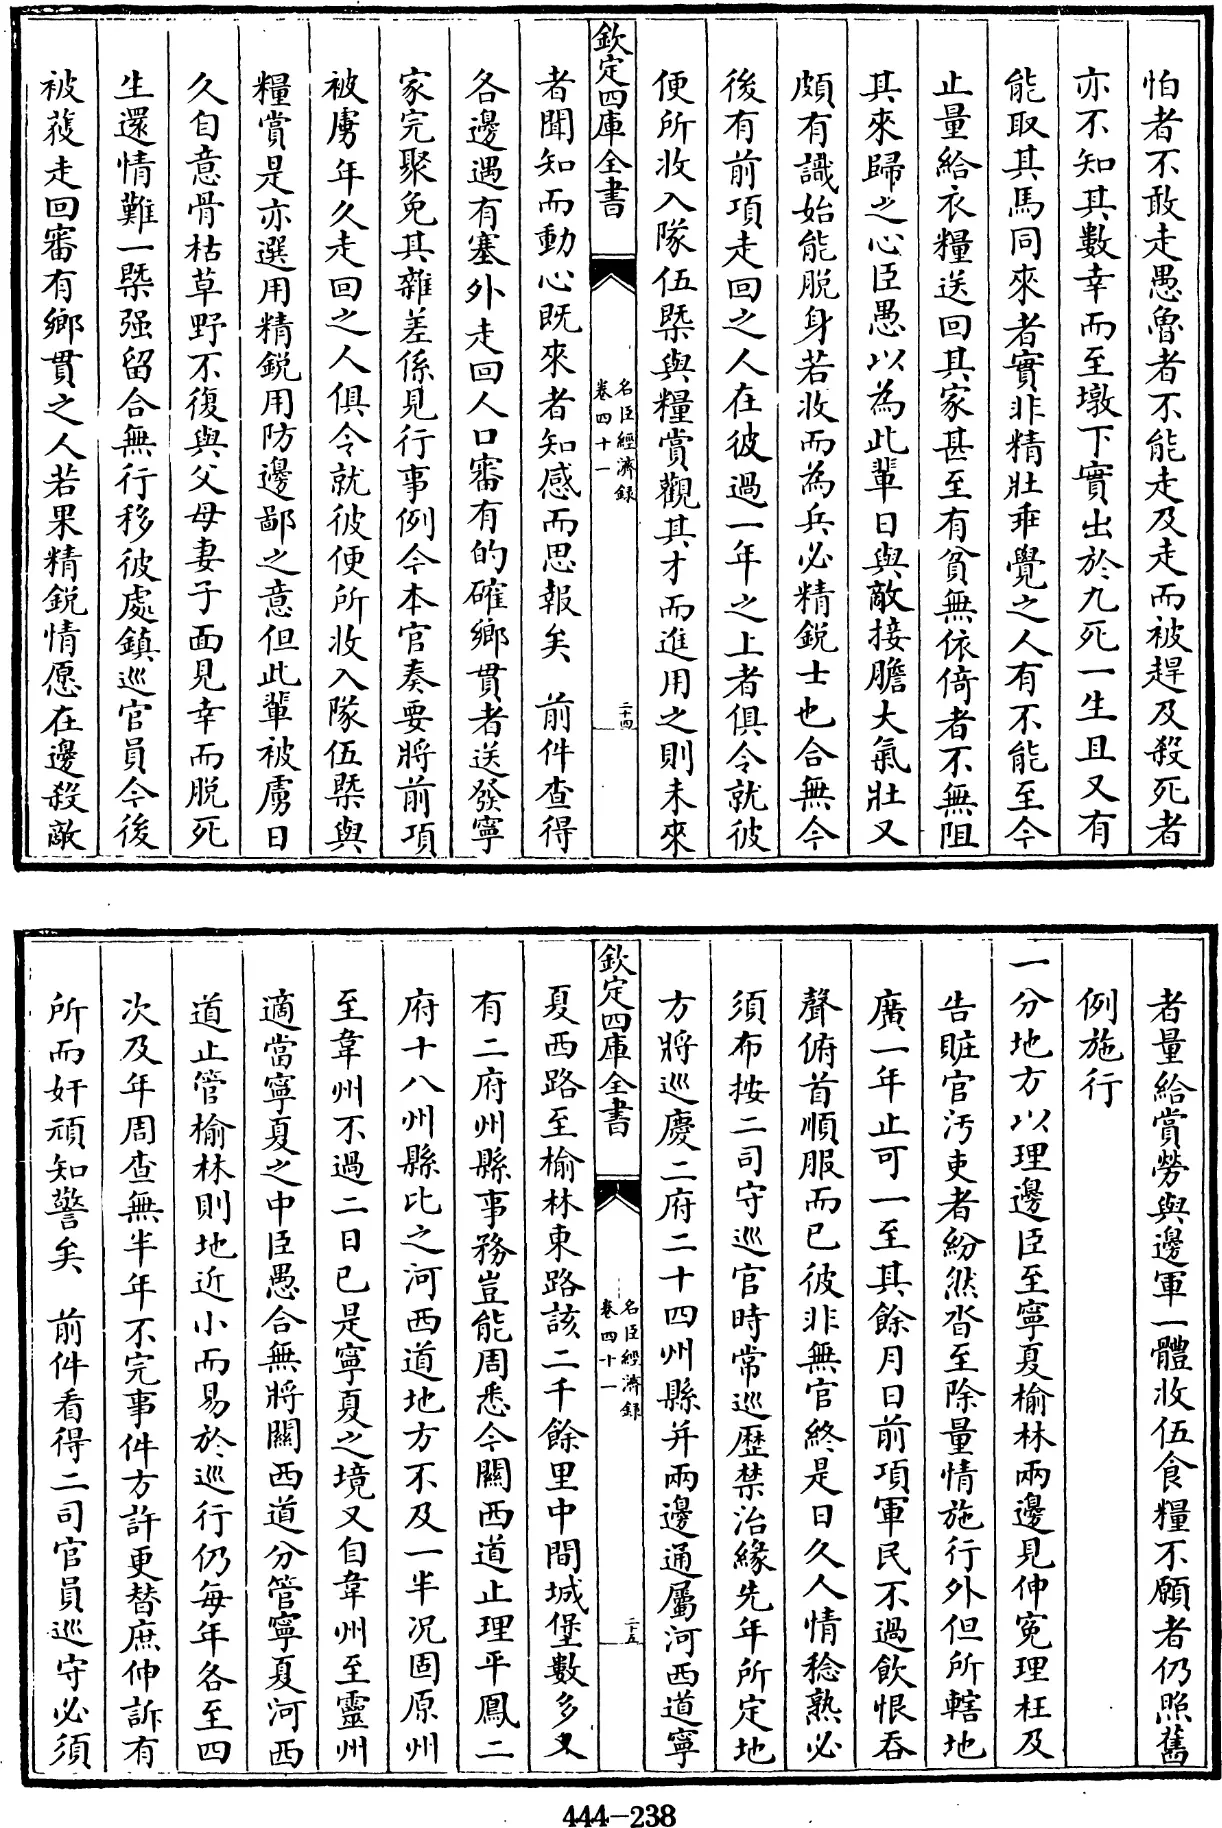 怕者不敢走愚魯者不能走及走而被趕及殺死者
亦不知其數幸而至墩下實出於九死一生且又有
能取其馬同來者實非精壯乖覺之人有不能至今
止量給衣糧送回其家甚至有貧無依倚者不無阻
其來歸之心臣愚以為此輩日與敵接膽大氣壯又
頗有識始能脫身若收而為兵必精鋭士也合無今
後有前項走回之人在彼過一年之上者俱令就彼
便所收入隊伍槩與糧賞觀其才而進用之則未來
欽定四庫全書
名臣經濟録
卷四十一
二十四
者聞知而動心既來者知感而思報矣 前件查得
各邊遇有塞外走回人口審有的確鄉貫者送發寧
家完聚免其雜差係見行事例今本官奏要將前項
被虜年久走回之人俱令就彼便所收入隊伍槩與
糧賞是亦選用精鋭用防邊鄙之意但此輩被虜日
久自意骨枯草野不復與父母妻子面見幸而脫死
生還情難一槩强留合無行移彼處鎮巡官員今後
被蒐走回審有鄉貫之人若果精鋭情愿在邊殺敵
者量給賞勞與邊軍一體收伍食糧不願者仍照舊
例施行
一分地方以理邊臣至寧夏榆林兩邊見伸寃理枉及
告賍官汚吏者紛然沓至除量情施行外但所轄地
廣一年止可一至其餘月日前項軍民不過飲恨吞
聲俯首順服而已彼非無官終是日久人情稔熟必
須布按二司守巡官時常巡歷禁治緣先年所定地
方將巡慶二府二十四州縣并兩邊通屬河西道寧
欽定四庫全書
名臣經濟録
卷四十一
二十五
夏西路至榆林東路該二千餘里中間城堡數多又
有二府州縣事務豈能周悉今關西道止理平鳳二
府十八州縣比之河西道地方不及一半况固原州
至韋州不過二日已是寧夏之境又自韋州至靈州
適當寧夏之中臣愚合無將關西道分管寧夏河西
道止管榆林則地近小而易於巡行仍每年各至四
次及年周查無半年不完事件方許更替庶伸訴有
所而奸頑知警矣 前件看得二司官員巡守必須
444-238